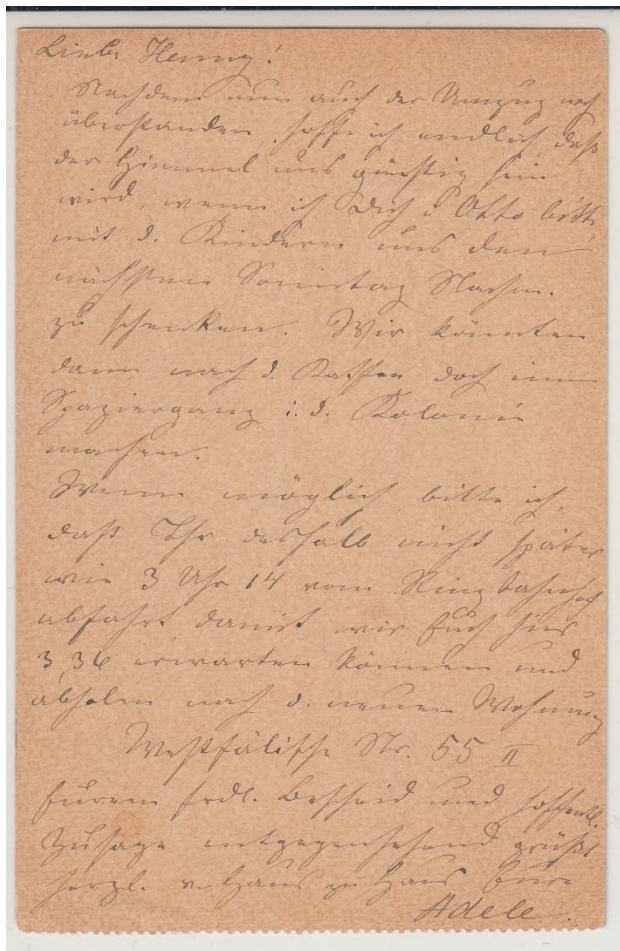 Liebe Henny!
Nachdem nun auch der Umzug noch
überstanden, hoffe ich endlich daß
der Himmel uns günstig sein
wird, wenn ich Dich u. Otto bitte,
mit d. Kindern uns den
nächsten Sonntag Nachm.
zu schenken. Wir könnten
dann nach d. Kaffee doch einen
Spaziergang i. d. Kolonie
machen.
Wenn möglich bitte ich,
daß Ihr deshalb nicht später
wie 3 Uhr 14 vom Ringbahnhof
abfahrt damit wir Euch hier
3,36 erwarten können und
abholen nach d. neuen Wohnung
Westfälische Str. 55 II
Eurem frdl. Bescheid und hoffentl.
Zusage entgegensehend grüßt
herzl. v. Haus zu Haus Eure
Adele.